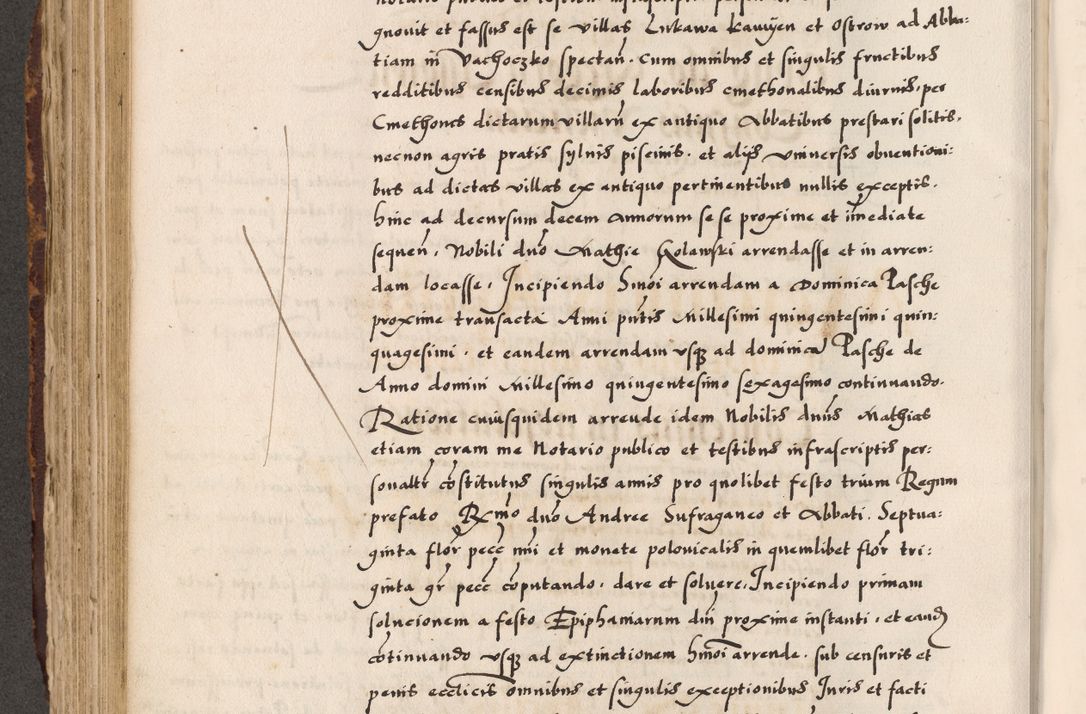 gnouit et fassus est se villas Lukawa kauuyen et Ostrow ad Abba:
tiam in Vachoczko spectan̄. Cum omnibus et singulis fructibus
redditibus censibus decimis laboribus cmethonalibus diurnis, per
Cmethones dictarum villarū ex antiquo Abbatibus prestari solitis,
necnon agris pratis syluis piscinis. et alijs vniuersis obuentioni:
bus ad dictas villas ex antiquo pertinentibus nullis exceptis.
hinc ad decursum decem annorum se se proxime et im̄ediate
sequen̄, Nobili dn̄o Mathie Golawski arrendasse et in arren:
dam locasse, Incipiendo hm̄oi arrendam a Dominica Pasche
proxime transacta Anni pn̄tis Millesimi quingentesimi quin:
quagesimi, et eandem arrendam vsq̢ ad dominicā Pasche de
Anno domini Millesimo quingentesimo sexagesimo continuando.
Ratione cuiusquidem arrende idem Nobilis dn̄us Mathias
etiam coram me Notario publico et testibus infrascriptis per:
sonalr̄ cōstitutus singulis annis pro quolibet festo trium Regum
prefato Rx̄mo dn̄o Andree Sufraganeo et Abbati. Septua:
ginta flor̄ pecc̄ nr̄i et monete polonicalis in quemlibet flor̄ tri:
ginta gr̄ pecc̄ cōputando, dare et soluere, Incipiendo primam
solucionem a festo Epiphaniarum dn̄i proxime instanti, et eand̄
cōtinuando vsq̢ ad extinctionem hm̄oi arrende. sub censuris et
penis eccl̄icis omnibus et singulis exceptionibus Iuris et facti